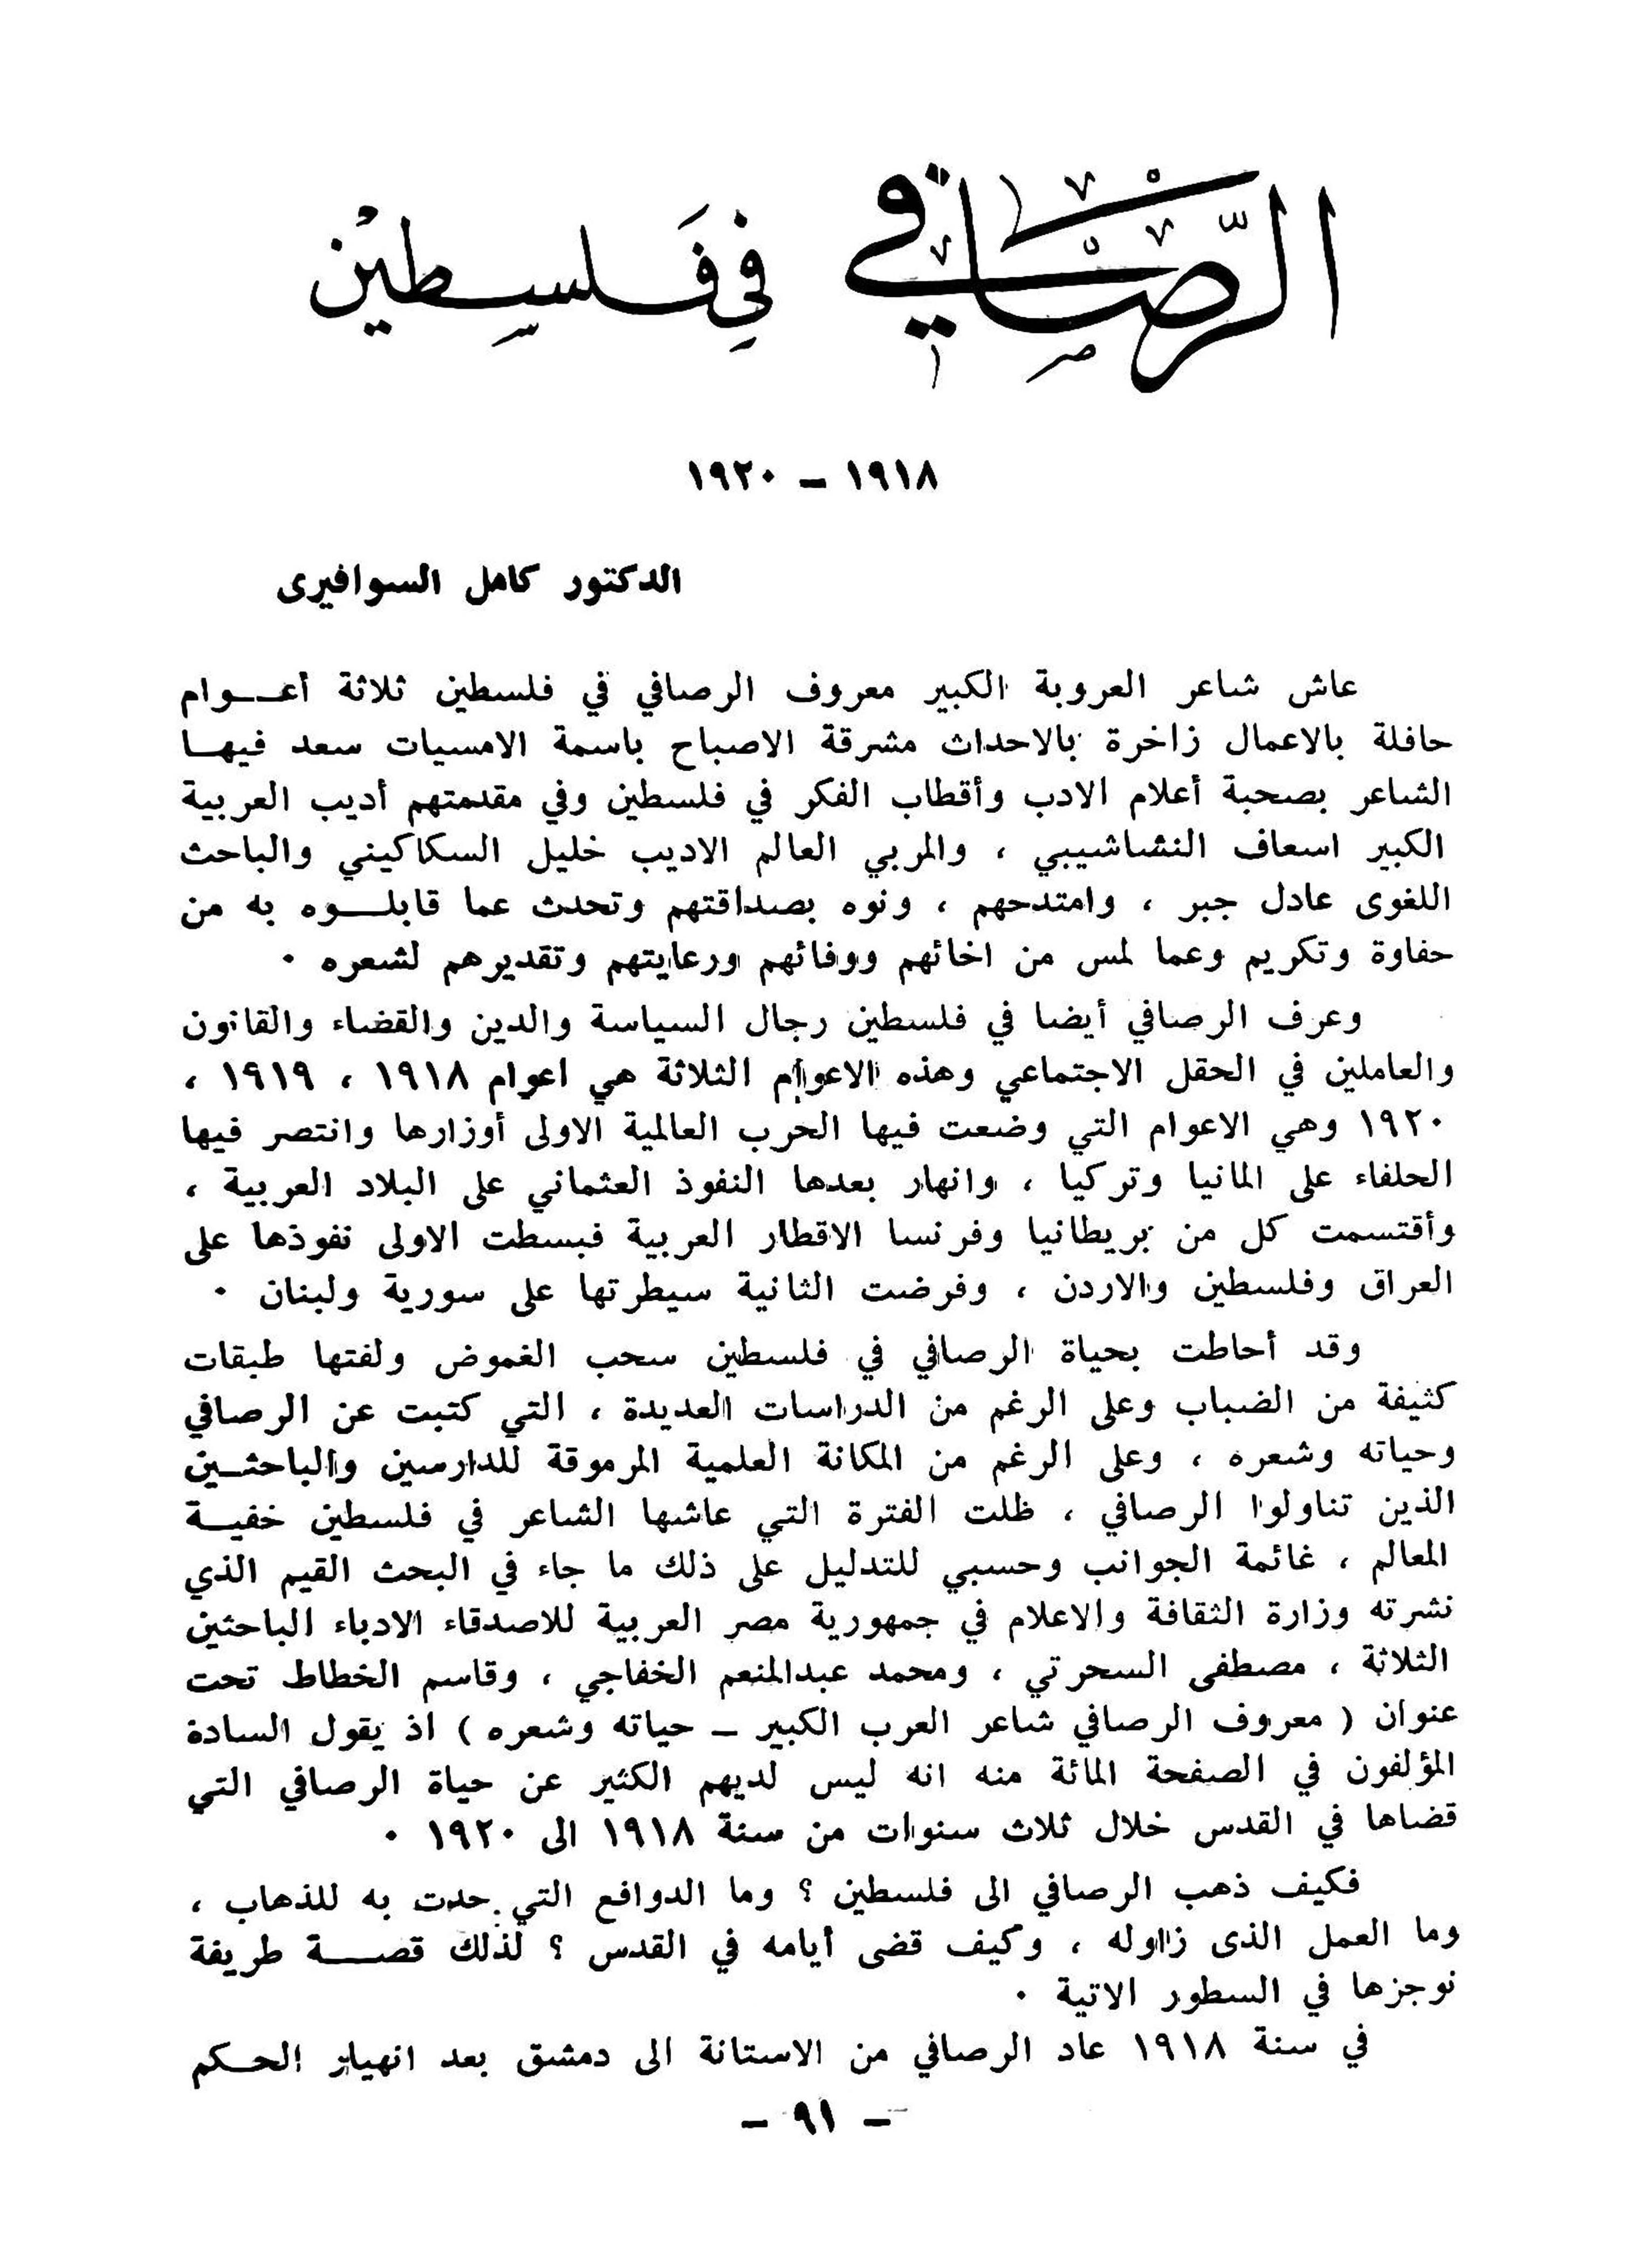 الرصافي في فلسطين
١٩١٨ - ١٩٢٠
الدكتور كامل السوافيرى
عاش شاعر العروبة الكبير معروف الرصافي في فلسطين ثلاثة أعوام
حافلة بالاعمال زاخرة بالاحداث مشرقة الاصباح باسمة الامسيات سعد فيها
الشاعر بصحبة أعلام الادب وأقطاب الفكر في فلسطين وفي مقدمتهم أديب العربية
الكبير اسعاف النشاشيبي ، والمربي العالم الاديب خليل السكاكيني والباحث
اللغوى عادل جبر ، وامتدحهم ، ونوه بصداقتهم وتحدث عما قابلوه به من
حفاوة وتكريم وعما لمس من اخائهم ووفائهم ورعايتهم وتقديرهم لشعره ٠
وعرف الرصافي أيضا في فلسطين رجال السياسة والدين والقضاء والقانون
والعاملين في الحقل الاجتماعي وهذه الاعوام الثلاثة هي اعوام ١٩١٨ ، ١٩١٩ ،
١٩٢٠ وهي الاعوام التي وضعت فيها الحرب العالمية الاولى أوزارها وانتصر فيها
الحلفاء على المانيا وتركيا ، وانهار بعدها النفوذ العثماني على البلاد العربية ،
وأقتسمت كل من بريطانيا وفرنسا الاقطار العربية فبسطت الاولى نفوذها على
العراق وفلسطين والاردن ، وفرضت الثانية سيطرتها على سورية ولبنان ٠
وقد أحاطت بحياة الرصافي في فلسطين سحب الغموض ولفتها طبقات
كثيفة من الضباب وعلى الرغم من الدراسات العديدة ، التي كتبت عن الرصافي
وحياته وشعره ، وعلى الرغم من المكانة العلمية المرموقة للدارسين والباحثين
الذين تناولوا الرصافي ، ظلت الفترة التي عاشها الشاعر في فلسطين خفية
المعالم ، غائمة الجوانب وحسبي للتدليل على ذلك ما جاء في البحث القيم الذي
نشرته وزارة الثقافة والاعلام في جمهورية مصر العربية للاصدقاء الادباء الباحثين
الثلاثة ، مصطفى السحرتي ، ومحمد عبدالمنعم الخفاجي ، وقاسم الخطاط تحت
عنوان ( معروف الرصافي شاعر العرب الكبير - حياته وشعره ) اذ يقول السادة
المؤلفون في الصفحة المائة منه انه ليس لديهم الكثير عن حياة الرصافي التي
قضاها في القدس خلال ثلاث سنوات من سنة ١٩١٨ الى ١٩٢٠ ٠
فكيف ذهب الرصافي الى فلسطين ؟ وما الدوافع التي حدت به للذهاب ،
وما العمل الذى زاوله ، وكيف قضى أيامه في القدس ؟ لذلك قصة طريفة
نوجزها في السطور الاتية ٠
في سنة ١٩١٨ عاد الرصافي من الاستانة الى دمشق بعد انهيار الحكم
- ٩١ -